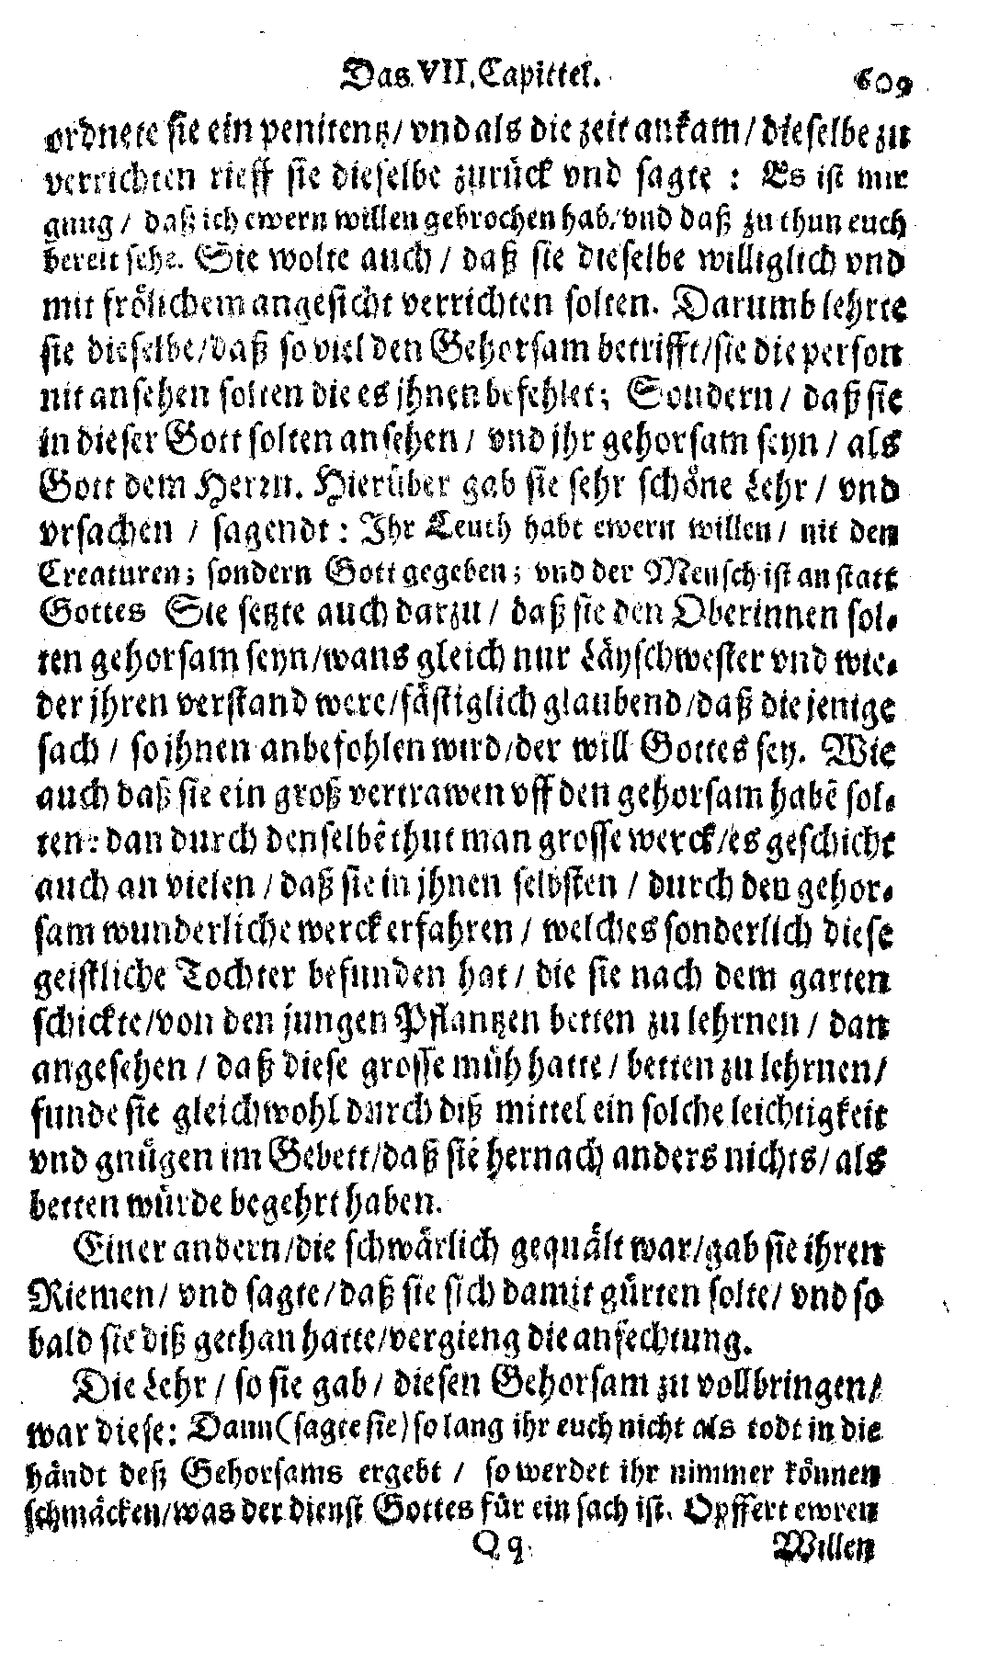 Das VII. Capittel. 609
ordnete sie ein penitentz/ vnd als die zeit ankam/ dieselbe zu
verrichten rieff sie dieselbe zurück vnd sagte : Es ist mir
gnug / daß ich ewern willen gebrochen hab/ vnd daß zu thun euch
bereit sehe. Sie wolte auch / daß sie dieselbe williglich vnd
mit frölichem angesicht verrichten solten. Darumb lehrte
sie dieselbe/ daß so viel den Gehorsam betrifft/ sie die person
nit ansehen solten die es jhnen befehlet; Sondern / daß sie
in dieser Gott solten ansehen / vnd jhr gehorsam seyn / als
Gott dem Herrn. Hierüber gab sie sehr schöne Lehr / vnd
vrsachen / sagendt : Ihr Leuth habt ewern willen / nit den
Creaturen; sondern Gott gegeben; vnd der Mensch ist an statt
Gottes Sie setzte auch darzu / daß sie den Oberinnen sol-
ten gehorsam seyn/ wans gleich nur Läyschwester vnd wie-
der jhren verstand were/ fästiglich glaubend/ daß die jenige
sach / so jhnen anbefohlen wird/ der will Gottes sey. Wie
auch daß sie ein groß vertrawen vff den gehorsam habē sol-
ten: dan durch denselbē thut man grosse werck/ es geschicht
auch an vielen / daß sie in jhnen selbsten / durch den gehor-
sam wunderliche werck erfahren / welches sonderlich diese
geistliche Tochter befunden hat / die sie nach dem garten
schickte/ von den jungen Pflantzen betten zu lehrnen / dan
angesehen / daß diese grosse müh hatte / betten zu lehrnen/
funde sie gleichwohl durch diß mittel ein solche leichtigkeit
vnd gnügen im Gebett/ daß sie hernach anders nichts/ als
betten würde begehrt haben.
Einer andern/ die schwärlich gequält war/ gab sie ihren
Riemen/ vnd sagte/ daß sie sich damit gürten solte/ vnd so
bald sie diß gethan hatte/ vergieng die anfechtung.
Die Lehr / so sie gab / diesen Gehorsam zu vollbringen/
war diese: Dann (sagte sie) so lang ihr euch nicht als todt in die
händt deß Gehorsams ergebt / so werdet ihr nimmer können
schmäcken/ was der dienst Gottes für ein sach ist. Opffert ewren
Q q Willen